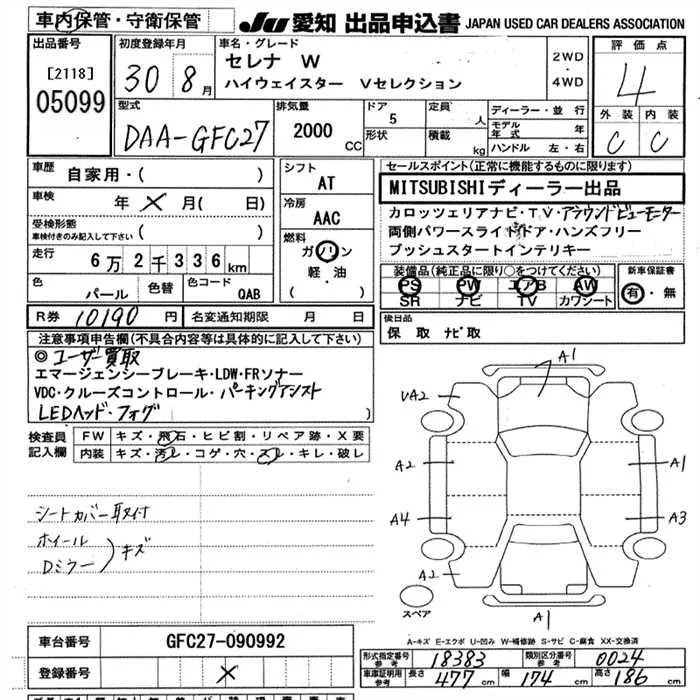 車内保管・守衛保管
JU 愛知 出品申込書 JAPAN USED CAR DEALERS ASSOCIATION
出品番号
[2118]
05099
初度登録年月
30 8月
車名・グレード
セレナ W
ハイウェイスター Vセレクション
2WD
4WD
評価点
4
外装 内装
C C
型式
DAA-GFC27
排気量
2000 CC
ドア
5
形状
定員
人
積載
kg
ディーラー・並行
モデル年式 年
ハンドル 左・右
車歴
自家用・( )
車検
年 X 月( 日)
受検形態
車検付きのみ記入して下さい ( )
走行
6万2千336km
色
パール
色替
色コード
QAB
シフト
AT
冷房
AAC
燃料
ガソリン
軽・油
( )
セールスポイント(正常に機能するものに限ります)
MITSUBISHIディーラー出品
カロッツェリアナビ・TV・アラウンドビューモニター
両側パワースライドドア・ハンズフリー
プッシュスタートインテリキー
装備品(純正品に限り○をつけてください)
PS PW エアB AW
SR ナビ TV カワシート
新車保証書
有・無
R券 10190円
名変通知期限 月 日
後日品
保 取 ナビ取
注意事項申告欄(不具合内容等は具体的に記入して下さい)
◎ユーザー買取
エマージェンシーブレーキ・LDW・FRソナー
VDC・クルーズコントロール・パーキングアシスト
LEDヘッド・フォグ )
検査員記入欄
FW キズ・飛石・ヒビ割・リペア跡・X要
内装 キズ・汚レ・コゲ・穴・スレ・キレ・破レ
シートカバー取付
ホイール
Dミラー
キズ
A1
UA2
A2
A1
A4
A3
A2
A1
スペア
A-キズ E-エクボ U-凹み W-補修跡 S-サビ C-腐食 XX-交換済
車台番号 GFC27-090992
登録番号 X
形式指定番号 参考 18383
類別区分番号 参考 0024
車庫証明用 参考 長さ 477cm 幅 174cm 高さ 186cm